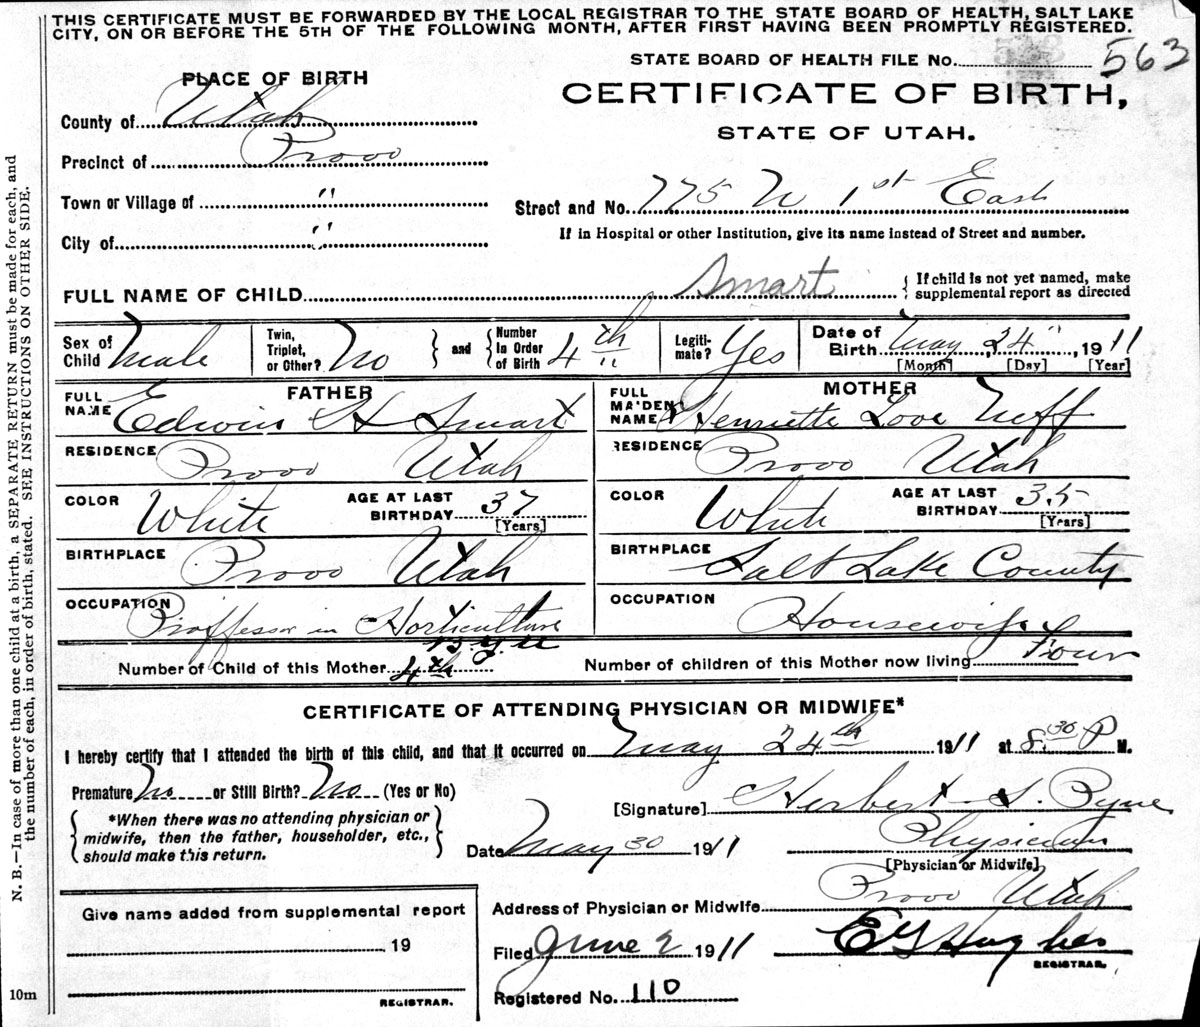 THIS CERTIFICATE MUST BE FORWARDED BY THE LOCAL REGISTRAR TO THE STATE BOARD OF HEALTH, SALT LAKE
CITY, ON OR BEFORE THE 5TH OF THE FOLLOWING MONTH, AFTER FIRST HAVING BEEN PROMPTLY REGISTERED.
STATE BOARD OF HEALTH FILE No. 563
PLACE OF BIRTH
CERTIFICATE OF BIRTH,
STATE OF UTAH.
County of Utah
Precinct of Provo
Town or Village of "
City of "
Street and No. 775 N 1st East
If in Hospital or other Institution, give its name instead of Street and number.
FULL NAME OF CHILD Smart { If child is not yet named, make
supplemental report as directed
Sex of Child Male
Twin, Triplet, or Other? No } and { Number in Order of Birth 4th "
Legitimate? Yes
Date of Birth May, 24", 1911
[Month] [Day] [Year]
FATHER
FULL NAME Edwin H Smart
RESIDENCE Provo Utah
COLOR White AGE AT LAST BIRTHDAY 37
[Years]
BIRTHPLACE Provo Utah
OCCUPATION Proffessor in Horticulture
B.Y.U
MOTHER
FULL MAIDEN NAME Henriette Love Neff
RESIDENCE Provo Utah
COLOR White AGE AT LAST BIRTHDAY 35
[Years]
BIRTHPLACE Salt Lake County
OCCUPATION Housewife
Number of Child of this Mother 4th
Number of children of this Mother now living Four
CERTIFICATE OF ATTENDING PHYSICIAN OR MIDWIFE*
I hereby certify that I attended the birth of this child, and that it occurred on May 24th 1911 at 8:30 P M.
Premature No or Still Birth? No (Yes or No)
{ *When there was no attending physician or
midwife, then the father, householder, etc.,
should make this return. }
[Signature] Herbert S. Pyne
Date May 30 1911
Physician
[Physician or Midwife]
Address of Physician or Midwife Provo Utah
Give name added from supplemental report
19
REGISTRAR.
Filed June 2 1911 E G Hughes
REGISTRAR.
Registered No. 110
10m
N. B.—In case of more than one child at a birth, a SEPARATE RETURN must be made for each, and
the number of each, in order of birth, stated. SEE INSTRUCTIONS ON OTHER SIDE.